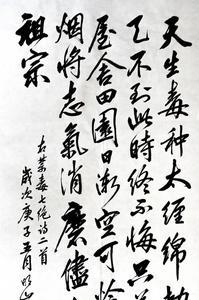 天生毒种太缠绵
乙不到此时终不悔只
屋舍田园日渐空可怜
烟将志气消磨尽
祖宗
右禁毒七绝诗二首
岁次庚子五月